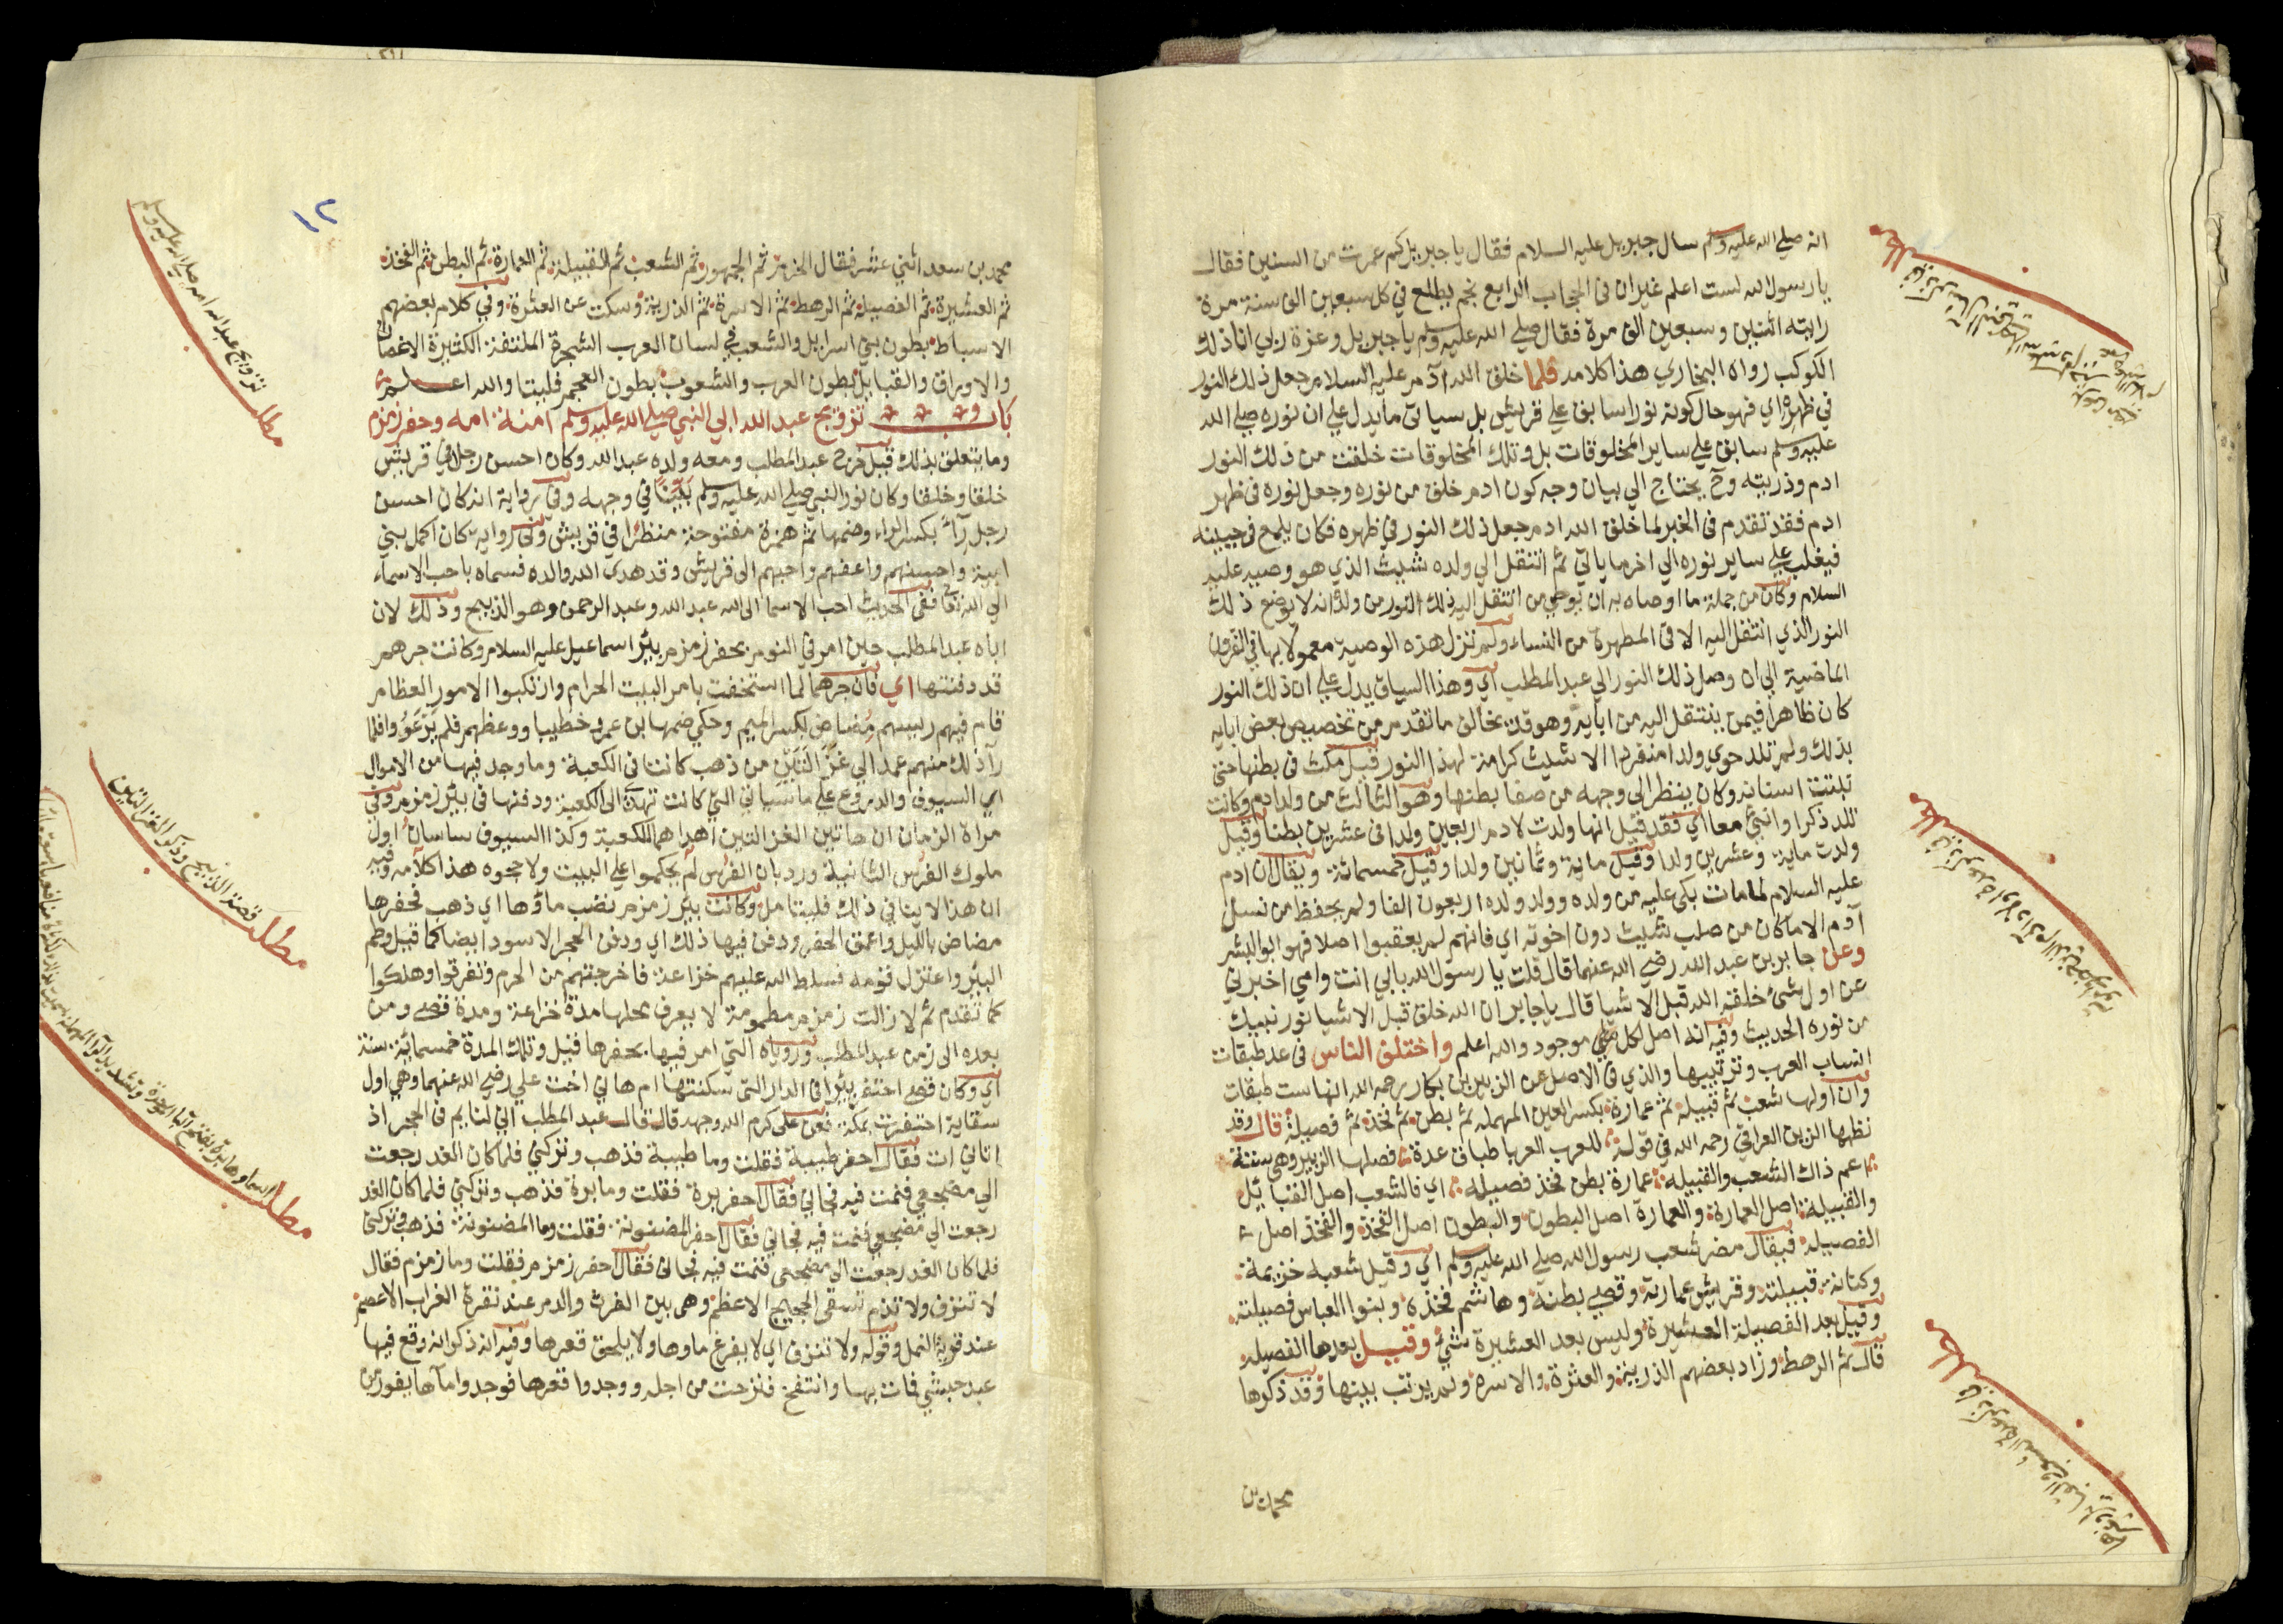 انه صلى الله عليه وسلم سال جبريل عليه السلام فقال يا جبريل كم عمرت من السنين فقال
يا رسول الله لست اعلم غير ان في الحجاب الرابع نجم يطلع في كل سبعين الف سنة مرة
رايته اثنين وسبعين الف مرة فقال صلى الله عليه وسلم يا جبريل وعزة ربي انا ذلك
الكوكب رواه البخاري هذا كلامه فلما خلق الله آدم عليه السلام جعل ذلك النور
في ظهره اي فهو حال كونه نورا سابق على قريش بل سياتي ما يدل على ان نوره صلى الله
عليه وسلم سابق على ساير المخلوقات بل وتلك المخلوقات خلقت من ذلك النور
ادم وذريته وح يحتاج الى بيان وجه كون ادم خلق من نوره وجعل نوره في ظهر
ادم فقد تقدم في الخبر لما خلق الله ادم جعل ذلك النور في ظهره فكان يلمع في جبينه
فيغلب على ساير نوره الى اخر ما ياتي ثم انتقل الى ولده شيث الذي هو وصيه عليه
السلام وكان من جملة ما اوصاه به ان يوصي من انتقل اليه ذلك النور من ولده انه لا يوضع ذلك
النور الذي انتقل اليه الا في المطهرة من النساء ولم تزل هذه الوصية معمولا بها في القرون
الماضية الى ان وصل ذلك النور الى عبد المطلب اي وهذا السياق يدل على ان ذلك النور
كان ظاهرا فيمن ينتقل اليه من ابايه وهو قد يخالف ما تقدم من تخصيص بعض ابايه
بذلك ولم تلد حوي ولدا منفردا الا شيث كرامة لهذا النور قيل مكث في بطنها حتى
نبتت اسنانه وكان ينظر الى وجهه من صفا بطنها وهو الثالث من ولد ادم وكانت
تلد ذكرا وانثى معا اي فقد قيل انها ولدت لادم اربعين ولدا في عشرين بطنا وقيل
ولدت ماية وعشرين ولدا وقيل ماية وثمانين ولدا وقيل خمسمائة ويقال ان ادم
عليه السلام لما مات بكى عليه من ولده وولد ولده اربعون الفا ولم يحفظ من نسل
آدم الا ما كان من صلب شيث دون اخوته اي فانهم لم يعقبوا اصلا فهو ابو البشر
وعن جابر بن عبد الله رضي الله عنهما قال قلت يا رسول الله بابي انت وامي اخبرني
عن اول شئ خلقه الله قبل الاشيا قال يا جابر ان الله خلق قبل الاشيا نور نبيك
من نوره الحديث وفيه انه اصل لكل موجود والله اعلم واختلف الناس في عد طبقات
انساب العرب وترتيبها والذي في الاصل عن الزبير بن بكار رحمه الله انها ست طبقات
وان اولها شعب ثم قبيلة ثم عمارة بكسر العين المهمله ثم بطن ثم فخذ ثم فصيلة قال وقد
نظمها الزين العراقي رحمه الله في قوله للعرب العربا طباق عدة فصلها الزبير وهي ستة
اعم ذاك الشعب والقبيله عمارة بطن فخذ فصيله اي فالشعب اصل القبايل
والقبيلة اصل العمارة والعمارة اصل البطون والبطون اصل الفخذ والفخذ اصل
الفصيلة فيقال مضر شعب رسول الله صلى الله عليه وسلم اي وقيل شعبه خزيمة
وكنانة قبيلته وقريش عمارته وقصي بطنه وهاشم فخذه وبنوا العباس فصيلته
وقيل بعد الفصيلة العشيرة وليس بعد العشيرة شئ وقيل بعدها الفصيلة
قال ثم الرهط وزاد بعضهم الذرية والعترة والاسره ولم يرتب بينها وقد ذكرها
محمد بن
مطلب
مطلب
مطلب
١٢
محمد بن سعد اثني عشر فقال الجذم ثم الجمهور ثم الشعب ثم القبيلة ثم العمارة ثم البطن ثم الفخذ
ثم العشيرة ثم الفصيلة ثم الرهط ثم الاسرة ثم الذرية وسكت عن العترة وفي كلام بعضهم
الاسباط بطون بني اسرايل والشعب في لسان العرب الشجرة الملتفة الكثيرة الاغصان
والاوراق والقبايل بطون العرب والشعوب بطون العجم فليتا والله اعلم
باب تزويج عبد الله ابي النبي صلى الله عليه وسلم آمنة امه وحفر زمزم
وما يتعلق بذلك قيل خرج عبد المطلب ومعه ولده عبد الله وكان احسن رجل في قريش
خلقا وخلقا وكان نور النبي صلى الله عليه وسلم بينا في وجهه وفي رواية انه كان احسن
رجل رآءٍ بكسر الراء وضمها ثم همزة مفتوحة منظرا في قريش وفي رواية كان اكمل بني
ابيه واحسنهم واعفهم واحبهم الى قريش وقد هدى الله والده فسماه باحب الاسماء
الى الله تعالى ففي الحديث احب الاسما الى الله عبد الله وعبد الرحمن وهو الذبيح وذلك لان
اباه عبد المطلب حين امر في النوم بحفر زمزم بئر اسماعيل عليه السلام وكانت جرهم
قد دفنتها اي فان جرهما لما استخفت بامر البيت الحرام وارتكبوا الامور العظام
قام فيهم رييسهم مضاض بكسر الميم وحكي ضمها بن عمرو خطيبا ووعظهم فلم يرعووا فلما
رآ ذلك منهم عمد الى غزالتين من ذهب كانتا في الكعبة وما وجد فيها من الاموال
اي السيوف والدروع على ما سياتي التي كانت تهدى الى الكعبة ودفنها في بئر زمزم وفي
مراة الزمان ان هاتين الغزالتين اهداهما للكعبة وكذا السيوف ساسان اول
ملوك الفرس الثانية ورد بان الفرس لم يحكموا على البيت ولا حجوه هذا كلامه وفيه
ان هذا لا ينافي ذلك فليتامل وكانت بئر زمزم نضب ماؤها اي ذهب فحفرها
مضاض بالليل واعمق الحفر ودفن فيها ذلك اي ودفن الحجر الاسود ايضا كما قيل وطم
البئر واعتزل قومه فسلط الله عليهم خزاعة فاخرجتهم من الحرم وتفرقوا وهلكوا
كما تقدم ثم لا زالت زمزم مطمومة لا يعرف محلها مدة خزاعة ومدة قصي ومن
بعده الى زمن عبد المطلب ورؤياه التي امر فيها بحفرها قيل وتلك المدة خمسمائة سنة
اي وكان قصي احتفر بئرا في الدار التي سكنتها ام هاني اخت علي رضي الله عنهما وهي اول
سقاية احتفرت بمكة فعن على كرم الله وجهه قال قال عبد المطلب اني لنايم في الحجر اذ
اتاني ات فقال احفر طيبة فقلت وما طيبة فذهب وتركني فلما كان الغد رجعت
الى مضجعي فنمت فيه فجاني فقال احفر برة فقلت وما برة فذهب وتركني فلما كان الغد
رجعت الى مضجعي فنمت فيه فجاني فقال احفر المضنونة فقلت وما المضنونة فذهب وتركني
فلما كان الغد رجعت الى مضجعي فنمت فيه فجاني فقال احفر زمزم فقلت وما زمزم فقال
لا تنزف ولا تذم تسقى الحجيج الاعظم وهي بين الفرث والدم عند نقرة الغراب الاعصم
عند قرية النمل وقوله ولا تنزف اي لا يفرغ ماوها ولا يلحق قعرها وفيه انه ذكر انه وقع فيها
عبد حبشي فمات بها وانتفخ فنزحت من اجله ووجدوا قعرها فوجدوا مآها يفور من
مطلب تزويج عبد الله امه صلى الله عليه وسلم
مطلب قصة الذبيح وذكر الغزالتين
مطلب